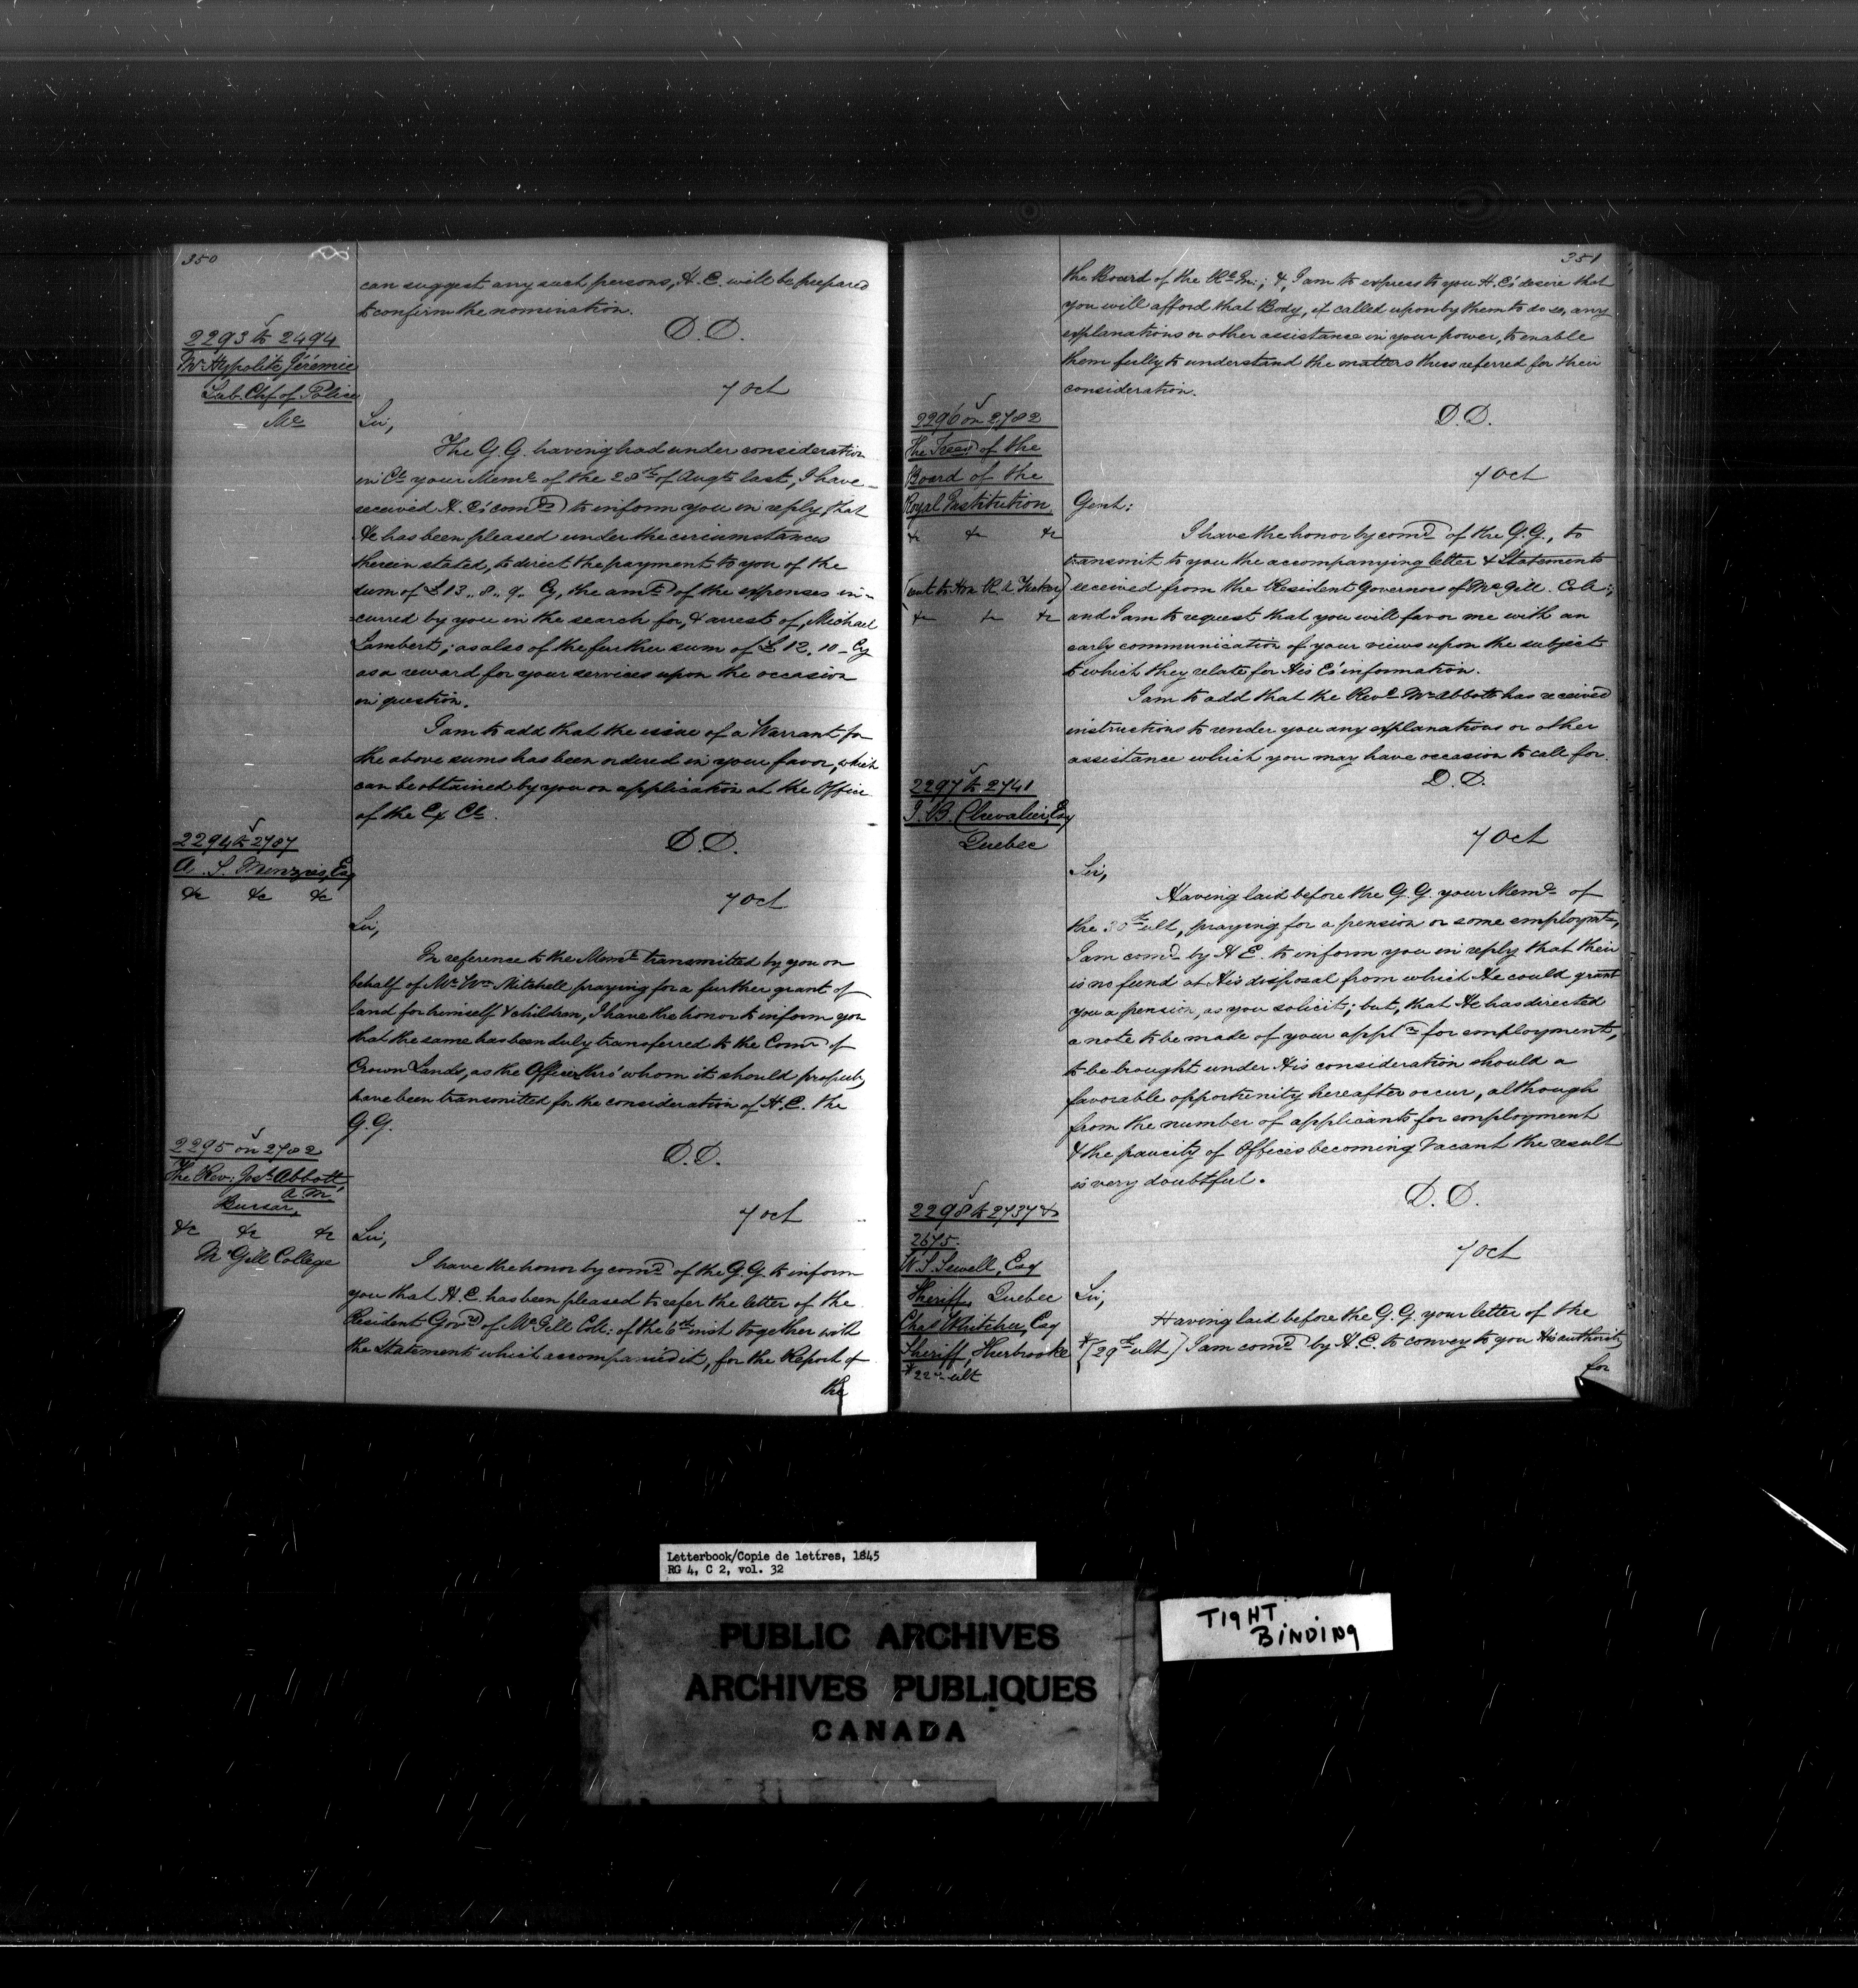 350
can suggest any such persons, H. E. will be prepared
to confirm the nomination.
D. D.
2293 to 2494
Mr Hypolite Jérémie
Sub. Chf of Police
&c
7 Oct
Sir,
The G. G. having had under consideration
in Cl. your Meml of the 28th of Augt last, I have
received H. E's comds to inform you in reply, that
He has been pleased under the circumstances
therein stated, to direct the payment to you of the
sum of £13.. 8.. 9. Cy, the amt of the expenses in-
-curred by you in the search for, & arrest of, Michael
Lambert; as also of the further sum of £12. 10 - Cy
as a reward for your services upon the occasion
in question.
I am to add that the issue of a Warrant for
the above sums has been ordered in your favor, which
can be obtained by you on application at the Office
of the Ex Cl.
D. D.
2294 to 2707
A. S. Menzies, Esq
&c &c &c
7 Oct
Sir,
In reference to the Meml transmitted by you on
behalf of Mr Wm Mitchell praying for a further grant of
land for himself & children, I have the honor to inform you
that the same has been duly transferred to the Comr of
Crown Lands, as the Officer thro' whom it should properly
have been transmitted for the consideration of H. E. the
G. G.
D. D.
2295 on 2702
The Rev: Josh Abbott,
A. M.
Bursar,
&c &c &c
McGill College
7 Oct
Sir,
I have the honor by comd of the G. G. to inform
you that H. E. has been pleased to refer the letter of the
Resident Govrs of McGill Coll: of the 6th inst together with
the Statements which accompanied it, for the Report of
the
351
the Board of the Rl In:; &, I am to express to you H. E's desire that
you will afford that Body, if called upon by them to do so, any
explanations or other assistance in your power, to enable
them fully to understand the matters thus referred for their
consideration.
D. D.
2296 on 2702
The of the
Board of the
Royal Institution
&c &c &c
(sent to Hon R. A. Tuckey)
&c &c &c
7 Oct
Gent:
I have the honor by comd of the G. G., to
transmit to you the accompanying letter & Statements
received from the Resident Governors of McGill. Coll:;
and I am to request that you will favor me with an
early communication of your views upon the subject
to which they relate for His E's information.
I am to add that the Revd Mr Abbott has received
instructions to render you any explanations or other
assistance which you may have occasion to call for.
D. D.
2297 to 2741
J. B. Chevalier, Esq
Quebec
7 Oct
Sir,
Having laid before the G. G. your Meml of
the 30th ult, praying for a pension or some employmt,
I am comd by H E. to inform you in reply that their
is no fund at His disposal from which He could grant
you a pension, as you solicit; but, that He has directed
a note to be made of your appln for employment,
to be brought under His consideration should a
favorable opportunity hereafter occur, although
from the number of applicants for employment
& the paucity of Offices becoming vacant the result
is very doubtful.
D. D.
2298 to 2737 &
2675.
W. S. Sewell, Esq
Sheriff, Quebec
Chas Whitcher, Esq
Sheriff, Sherbrooke
* 22nd ult
7 Oct
Sir,
Having laid before the G. G. your letter of the
*[29th ult] I am comd by H. E. to convey to you His authority
for
Letterbook/Copie de lettres, 1845
RG 4, C 2, vol. 32
PUBLIC ARCHIVES
ARCHIVES PUBLIQUES
CANADA
TIGHT
BINDING